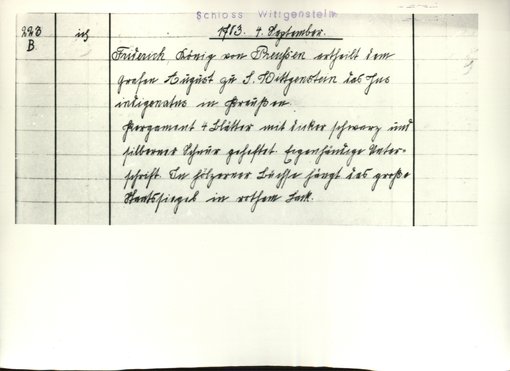 Schloss Wittgenstein
223 ich 1713. 4. September.
B.
Friderich König von Preußen ertheilt dem
Grafen August zu S. Wittgenstein das Jus
indigenatus in Preußen.
Pergament 4 Blätter mit dicker schwarz und
silberner Schnur geheftet. Eigenhändige Unter-
schrift. In hölzerner Büchse hängt das große
Staatssiegel in rothem Lack.